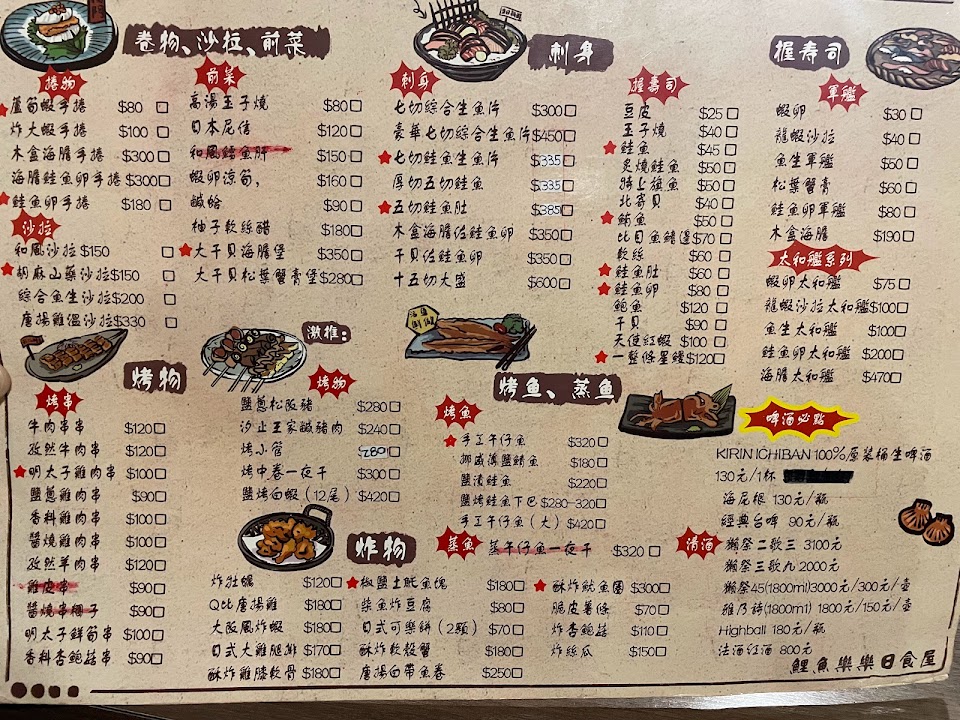 卷物、沙拉、前菜
捲物
蘆筍蝦手捲 $80
炸大蝦手捲 $100
木盒海膽手捲 $300
海膽鮭魚卵手捲 $300
鮭魚卵手捲 $180
沙拉
和風沙拉 $150
胡麻山藥沙拉 $150
綜合魚生沙拉 $200
唐揚雞溫沙拉 $330
前菜
高湯玉子燒 $80
日本尾信 $120
和風鱈魚肝 $150
蝦卵涼筍, $160
鹹蛤 $90
柚子軟絲醋 $180
大干貝海膽堡 $350
大干貝松葉蟹膏堡 $280
刺身
刺身
七切綜合生魚片 $300
豪華七切綜合生魚片 $450
七切鮭魚生魚片 $335
厚切五切鮭魚 $335
五切鮭魚肚 $385
木盒海膽佐鮭魚卵 $350
干貝佐鮭魚卵 $350
十五切大盛 $600
握壽司
握壽司
豆皮 $25
玉子燒 $40
鮭魚 $45
炙燒鮭魚 $50
時上旗魚 $50
北寄貝 $40
鮪魚 $50
比目魚鰭邊 $70
軟絲 $60
鮭魚肚 $60
鮭魚卵 $80
鮑魚 $120
干貝 $90
天使紅蝦 $100
一整條星鰻 $120
軍艦
蝦卵 $30
龍蝦沙拉 $40
魚生軍艦 $50
松葉蟹膏 $60
鮭魚卵軍艦 $80
木盒海膽 $190
太和艦系列
蝦卵太和艦 $75
龍蝦沙拉太和艦 $100
魚生太和艦 $100
鮭魚卵太和艦 $200
海膽太和艦 $470
烤物
激推:
烤串
牛肉串串 $120
孜然牛肉串 $120
明太子雞肉串 $100
鹽蔥雞肉串 $90
香料雞肉串 $100
醬燒雞肉串 $100
孜然羊肉串 $120
雞皮串 $90
醬燒串糰子 $90
明太子鮮筍串 $100
香料杏鮑菇串 $90
烤物
鹽蔥松阪豬 $280
汐止王家鹹豬肉 $240
烤小管 280
烤中卷一夜干 $300
鹽烤白蝦(12尾) $420
烤魚、蒸魚
烤魚
手工午仔魚 $320
挪威薄鹽鯖魚 $180
鹽漬鮭魚 $220
鹽烤鮭魚下巴 $280-320
手工午仔魚(大) $420
蒸魚
蒸午仔魚一夜干 $320
炸物
炸牡蠣 $120
Q比唐揚雞 $180
大阪風炸蝦 $180
日式大雞腿排 $170
酥炸雞膝軟骨 $180
椒鹽土魠魚塊 $180
柴魚炸豆腐 $80
日式可樂餅(2顆) $70
酥炸軟殼蟹 $180
唐揚白帶魚卷 $250
酥炸魷魚圈 $300
脆皮薯條 $70
炸杏鮑菇 $110
炸絲瓜 $150
啤酒必點
KIRIN ICHIBAN 100%原裝桶生啤酒
130元/1杯
海尼根 130元/瓶
經典台啤 90元/瓶
清酒
獺祭二歌三 3100元
獺祭三歌九 2000元
獺祭45(1800ml)3000元/300元/壺
雅乃詩(1800ml) 1800元/150元/壺
Highball 180元/瓶
法酒紅酒 800元
鯉魚樂樂日食屋